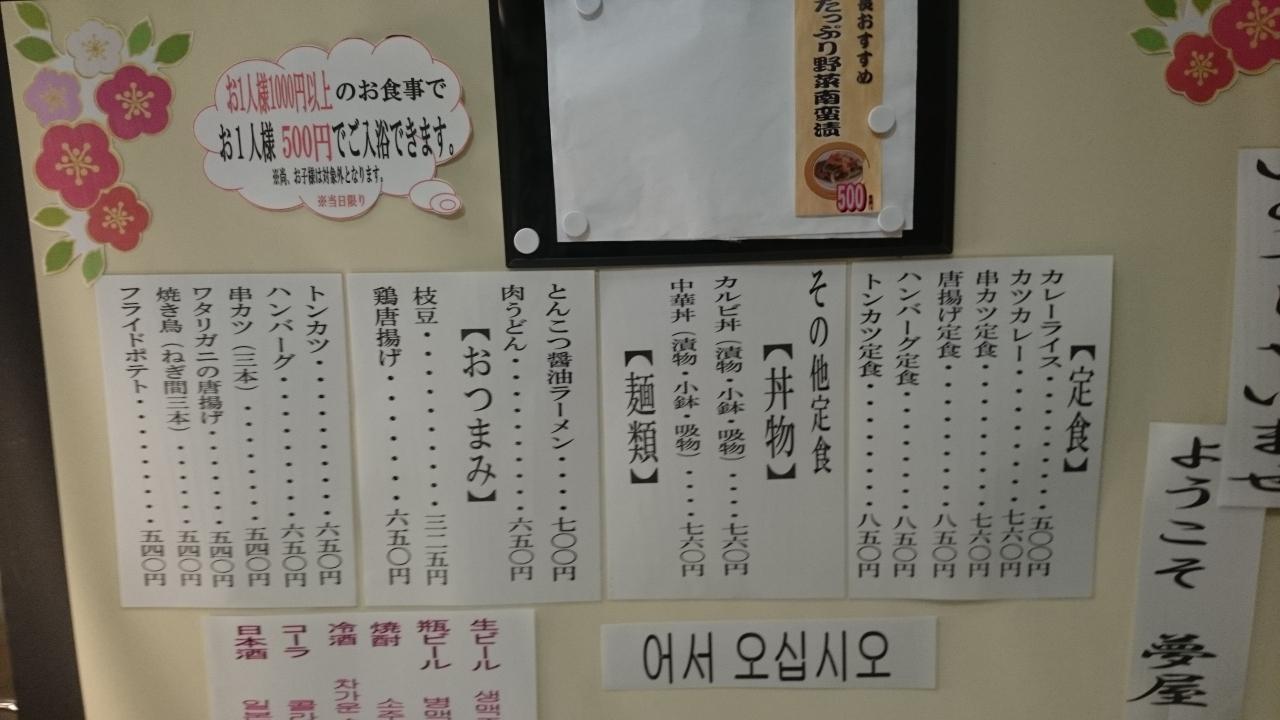 お1人様1000円以上のお食事で
お1人様 500円でご入浴できます。
※尚、お子様は対象外となります。
※当日限り
おすすめ
たっぷり野菜南蛮漬
500
【定食】
カレーライス・・・・・・・・・五〇〇円
カツカレー・・・・・・・・・七六〇円
串カツ定食・・・・・・・・・七六〇円
唐揚げ定食・・・・・・・・・八五〇円
ハンバーグ定食・・・・・・・・八五〇円
トンカツ定食・・・・・・・・・八五〇円
その他定食
【丼物】
カルビ丼（漬物・小鉢・吸物）・・・・七六〇円
中華丼（漬物・小鉢・吸物）・・・・七六〇円
【麺類】
とんこつ醤油ラーメン・・・・七〇〇円
肉うどん・・・・・・・・・・六五〇円
【おつまみ】
枝豆・・・・・・・・・・三二五円
鶏唐揚げ・・・・・・・・六五〇円
トンカツ・・・・・・・・・・六五〇円
ハンバーグ・・・・・・・・・六五〇円
串カツ（三本）・・・・・・・五四〇円
ワタリガニの唐揚げ・・・・・・五四〇円
焼き鳥（ねぎ間三本）・・・・・五四〇円
フライドポテト・・・・・・・・五四〇円
어서 오십시오
生ビール 생맥
瓶ビール 병맥
焼酎 소주
冷酒 차가운
コーラ 콜라
日本酒 일본
いませ
ようこそ 夢屋